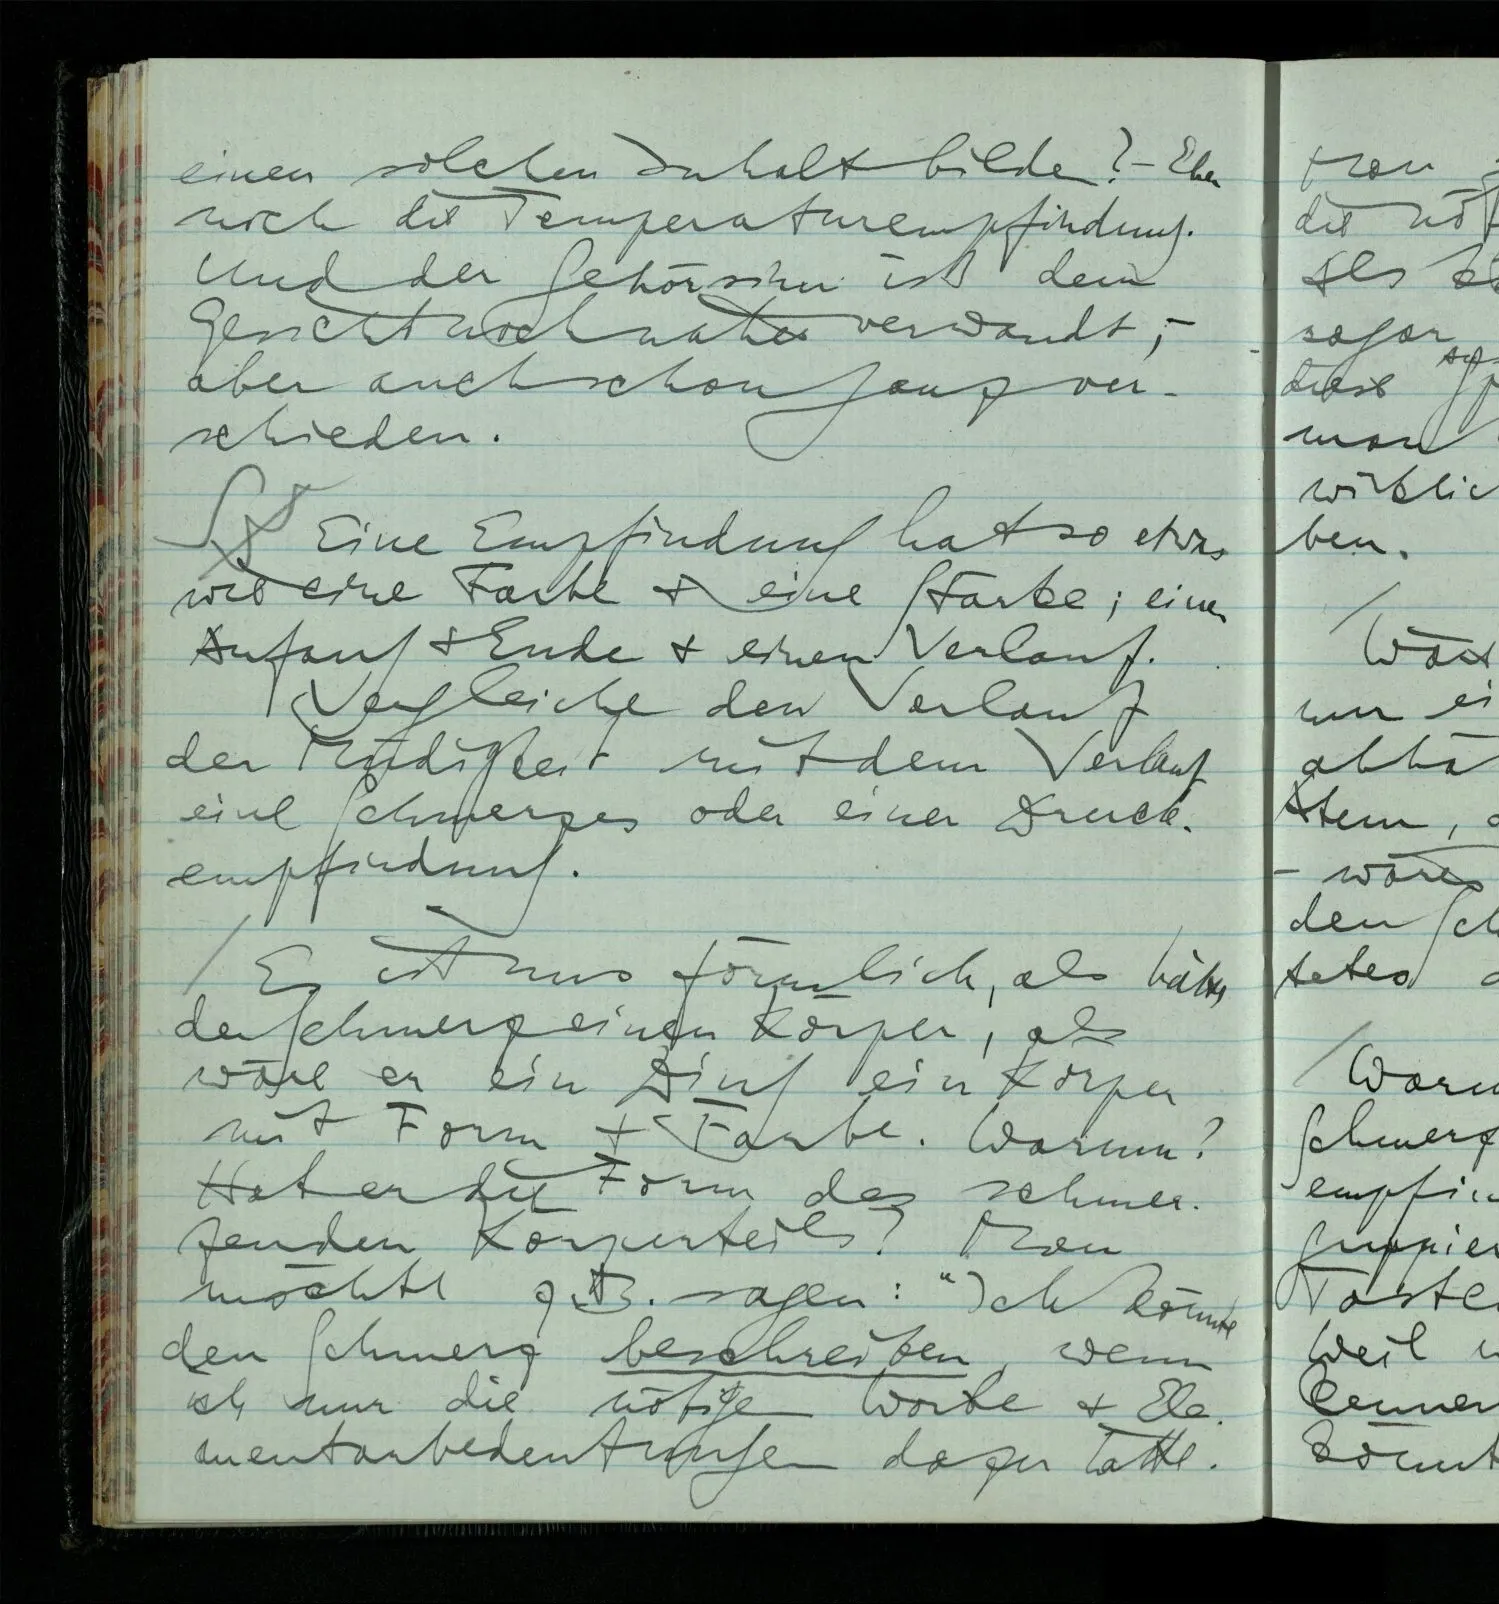 einen solchen Inhalt bilde? – Eher
noch die Temperaturempfindung.
Und der Gehörsinn ist dem
Gesicht noch näher verwandt; –
aber auch schon ganz ver-
schieden.
Eine Empfindung hat so etwas
wie eine Farbe & eine Stärke; einen
Anfang & Ende & einen Verlauf.
Vergleiche den Verlauf
der Müdigkeit mit dem Verlauf
eine Schmerzes oder einer Druck-
empfindung.
/ Es ist uns förmlich, als hätte
der Schmerz einen Körper, als
wäre er ein Ding ein Körper
mit Form & Farbe. Warum?
Hat er die Form des schmer-
zenden Körperteils? Man
möchte z.B. sagen: "Ich könnte
den Schmerz beschreiben, wenn
ich nur die nötige Worte & Ele-
mentarbedeutungen dazu hätte.
man
die nö
Als
sogar
diese
man
wirklic
ben.
/ Wäre
nur ei
-
den Sch
tetes
/ Waru
Schmerz
empfin
gruppier
Taste
Weil
kenne
könnt